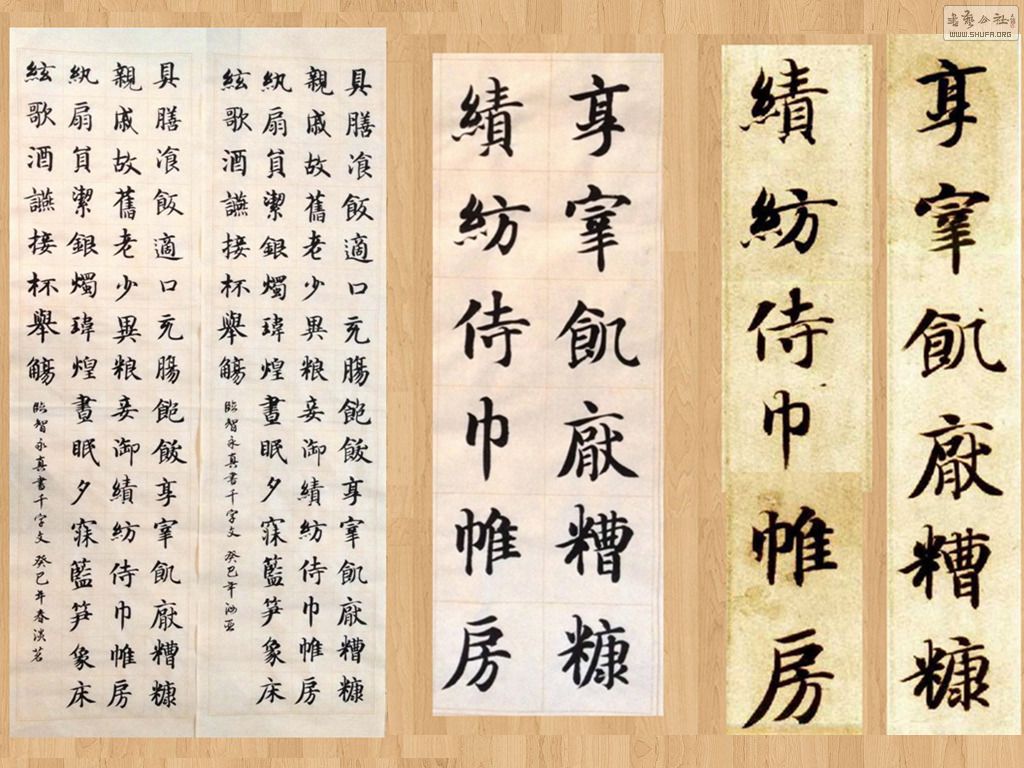 書藝公社
WWW.SHUFA.ORG
享宰飢厭糟糠
績紡侍巾帷房
享宰飢厭糟糠
績紡侍巾帷房
具膳湌飯適口充腸飽飫享宰飢厭糟糠
親戚故舊老少異粮妾御績紡侍巾帷房
紈扇員潔銀燭瑋煌晝眠夕寐藍笋象床
絃歌酒讌接杯舉觴
臨智永真書千字文 癸巳年
具膳湌飯適口充腸飽飫享宰飢厭糟糠
親戚故舊老少異粮妾御績紡侍巾帷房
紈扇員潔銀燭瑋煌晝眠夕寐藍笋象床
絃歌酒讌接杯舉觴
臨智永真書千字文 癸巳年春淡茗